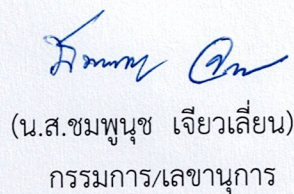 (น.ส.ชมพูนุช เจียวเลี่ยน)
กรรมการ/เลขานุการ